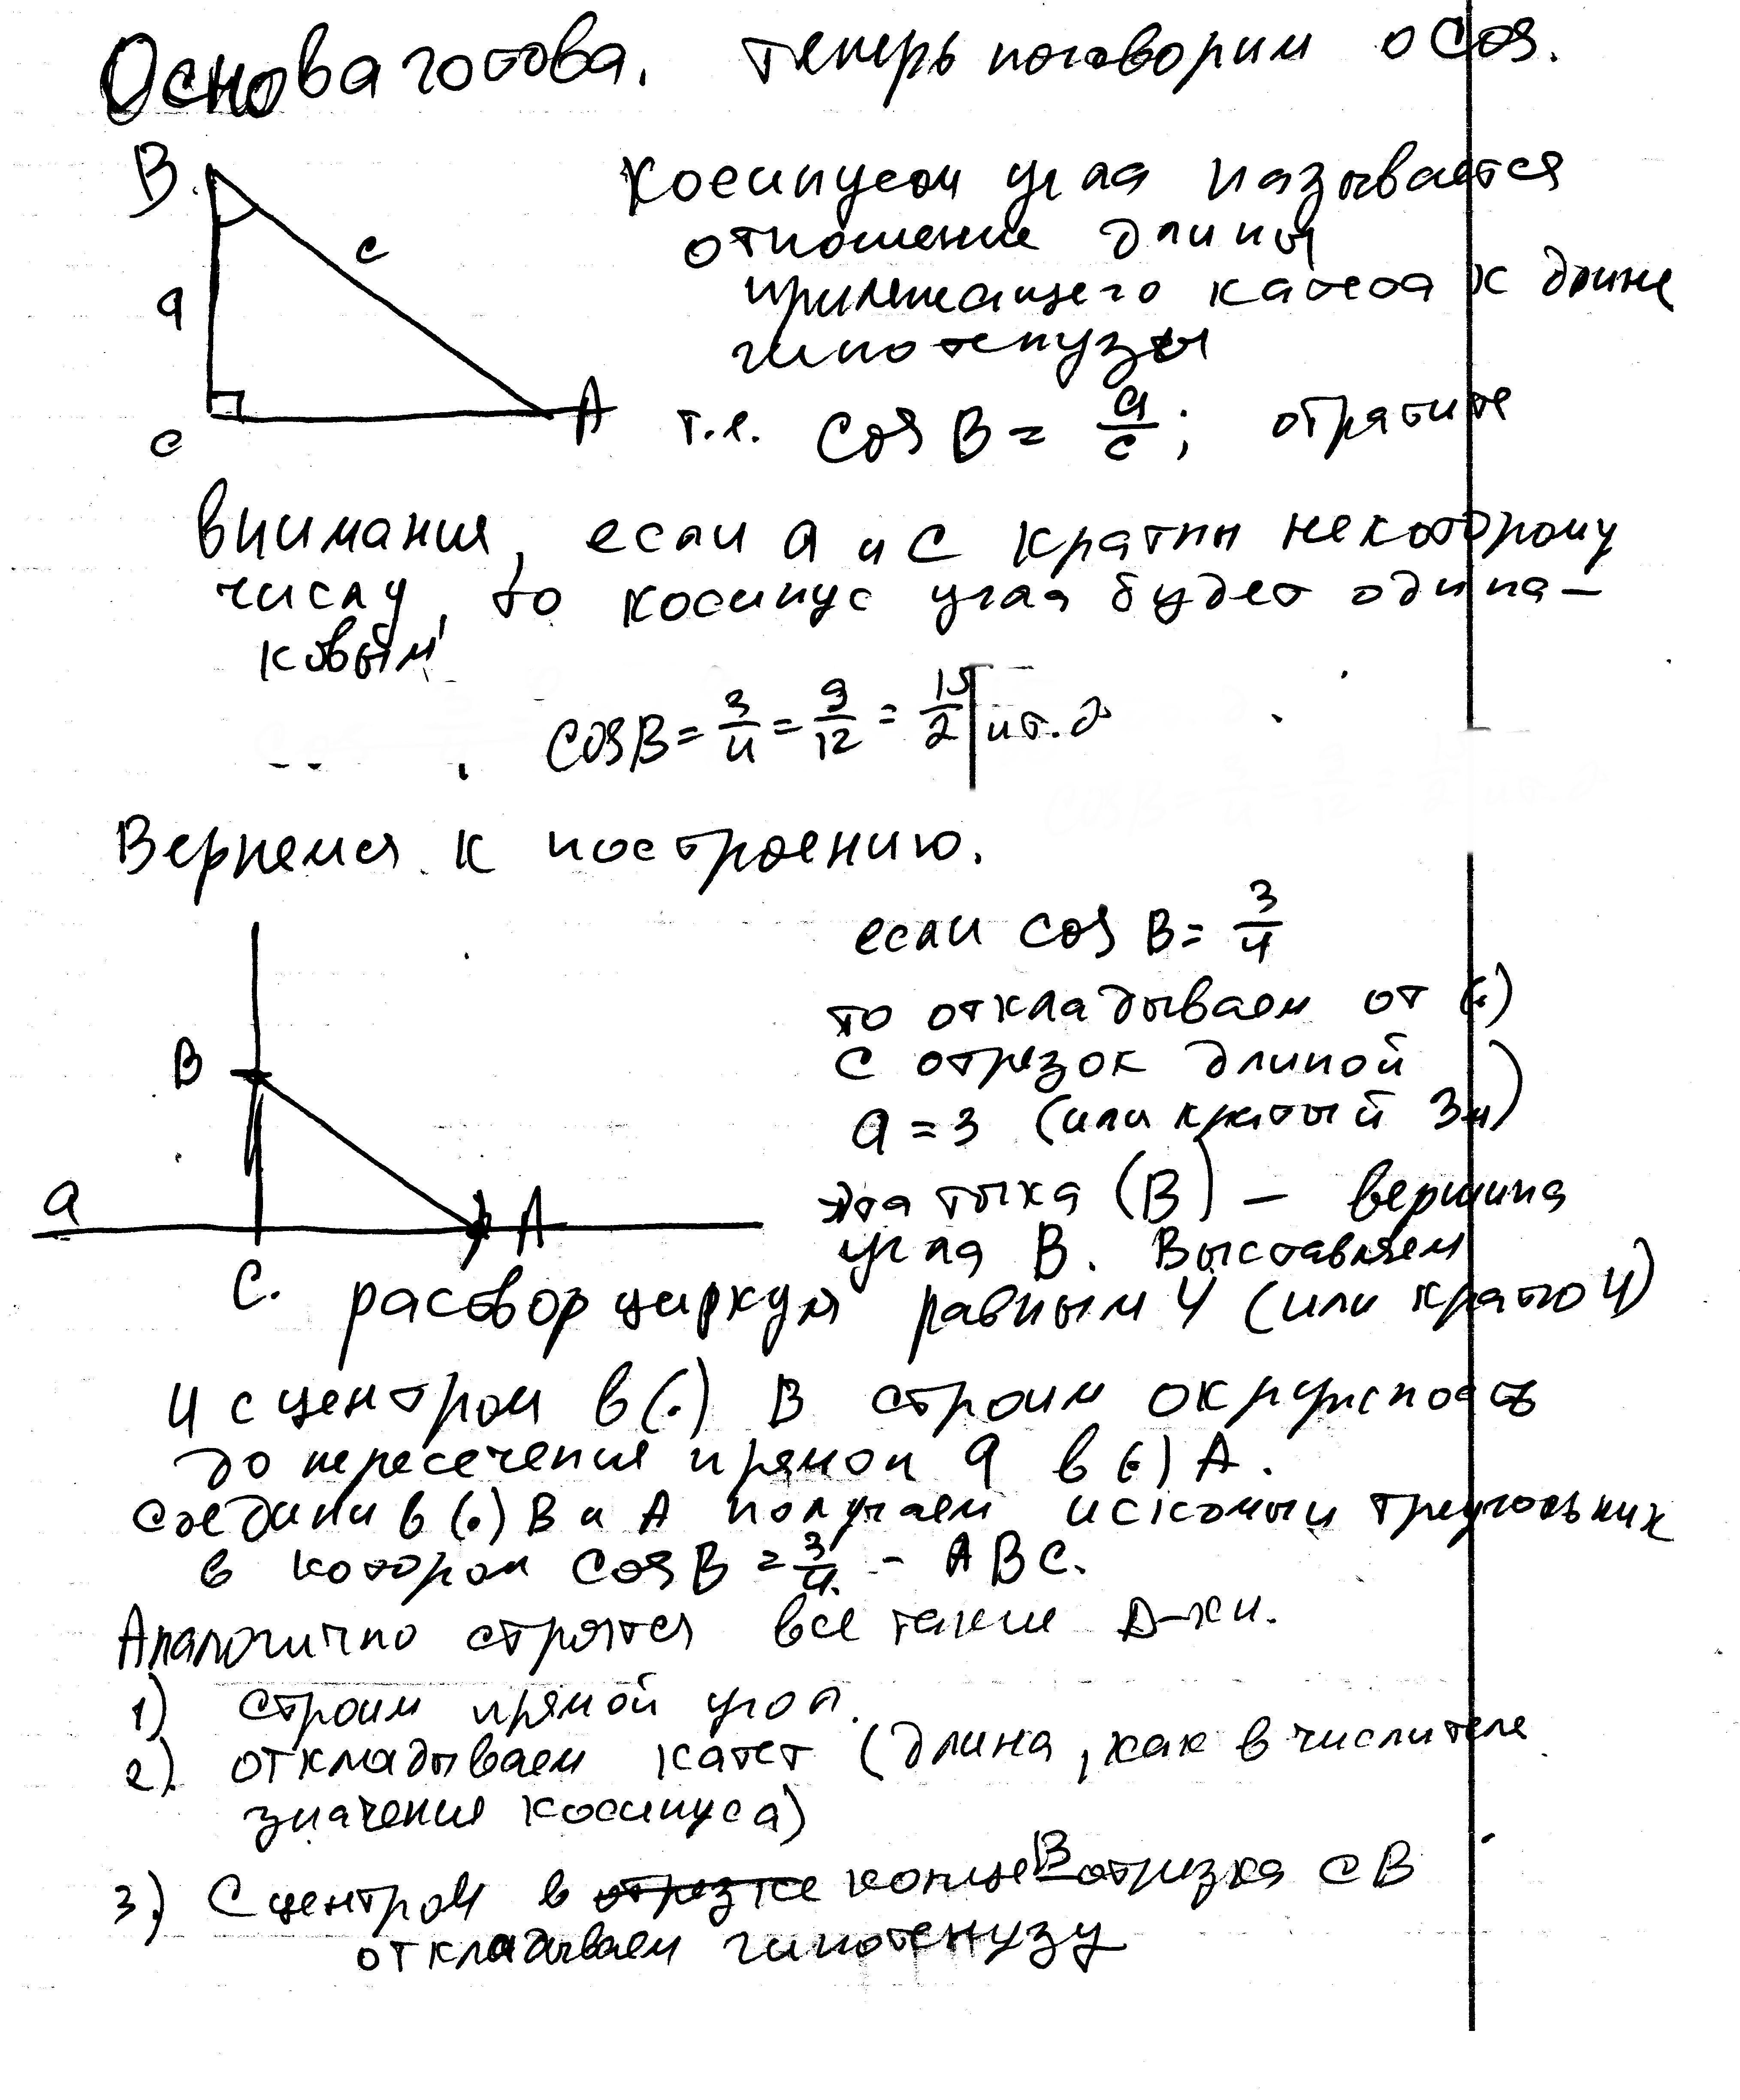 Основа готова. Теперь поговорим о Cos.
B
c
a
c
A
Косинусом угла называется
отношение длины
прилежащего катета к длине
гипотенузы
т.е. Cos B = a/c; обратите
внимания, если a и c кратны некоторому
числу, то косинус угла будет одина-
ковым
cosB = 3/4 = 9/12 = 15/2 и т.д
Вернемся к построению.
если cos B = 3/4
то откладываем от (.)
C отрезок длиной
a = 3 (или кратый 3м)
эта точка (B) – вершина
угла B. Выставляем
B
a
A
C.
раствор циркуля равным 4 (или кратно 4)
и с центром в (.) B строим окружность
до пересечения прямой a в (.) A.
Соединив (.) B и A получаем искомый треугольник
в котором CosB = 3/4 - ABC.
Аналогично строятся все такие Δ-ки.
1) строим прямой угол.
2) откладываем катет (длина, как в числителе
значения косинуса)
3) С центром в отрезке конце B отрезка CB
откладываем гипотенузу